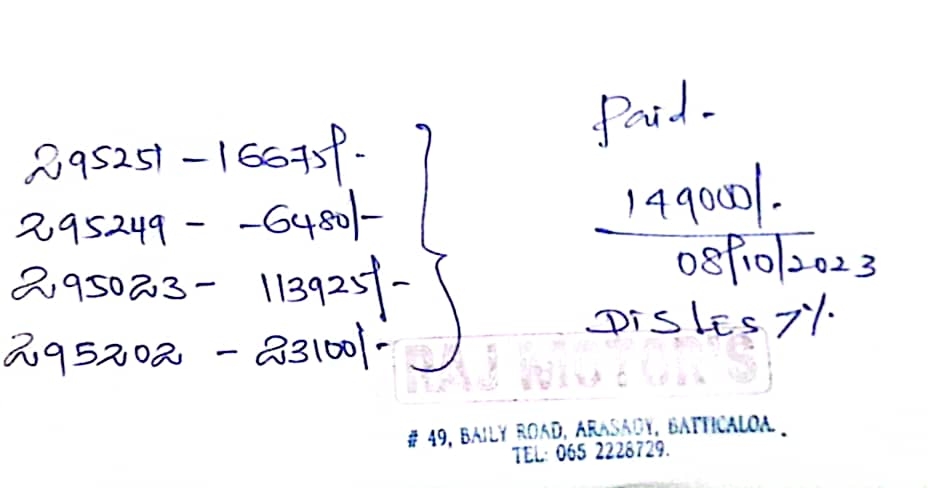 295251 - 16675/-
295249 - - 6480/-
295023 - 113925/-
295202 - 23100/-
Paid -
149000/-
08/10/2023
DISLES 7%
RAJ MOTOR'S
# 49, BAILY ROAD, ARASADY, BATTICALOA.
TEL: 065 2228729.